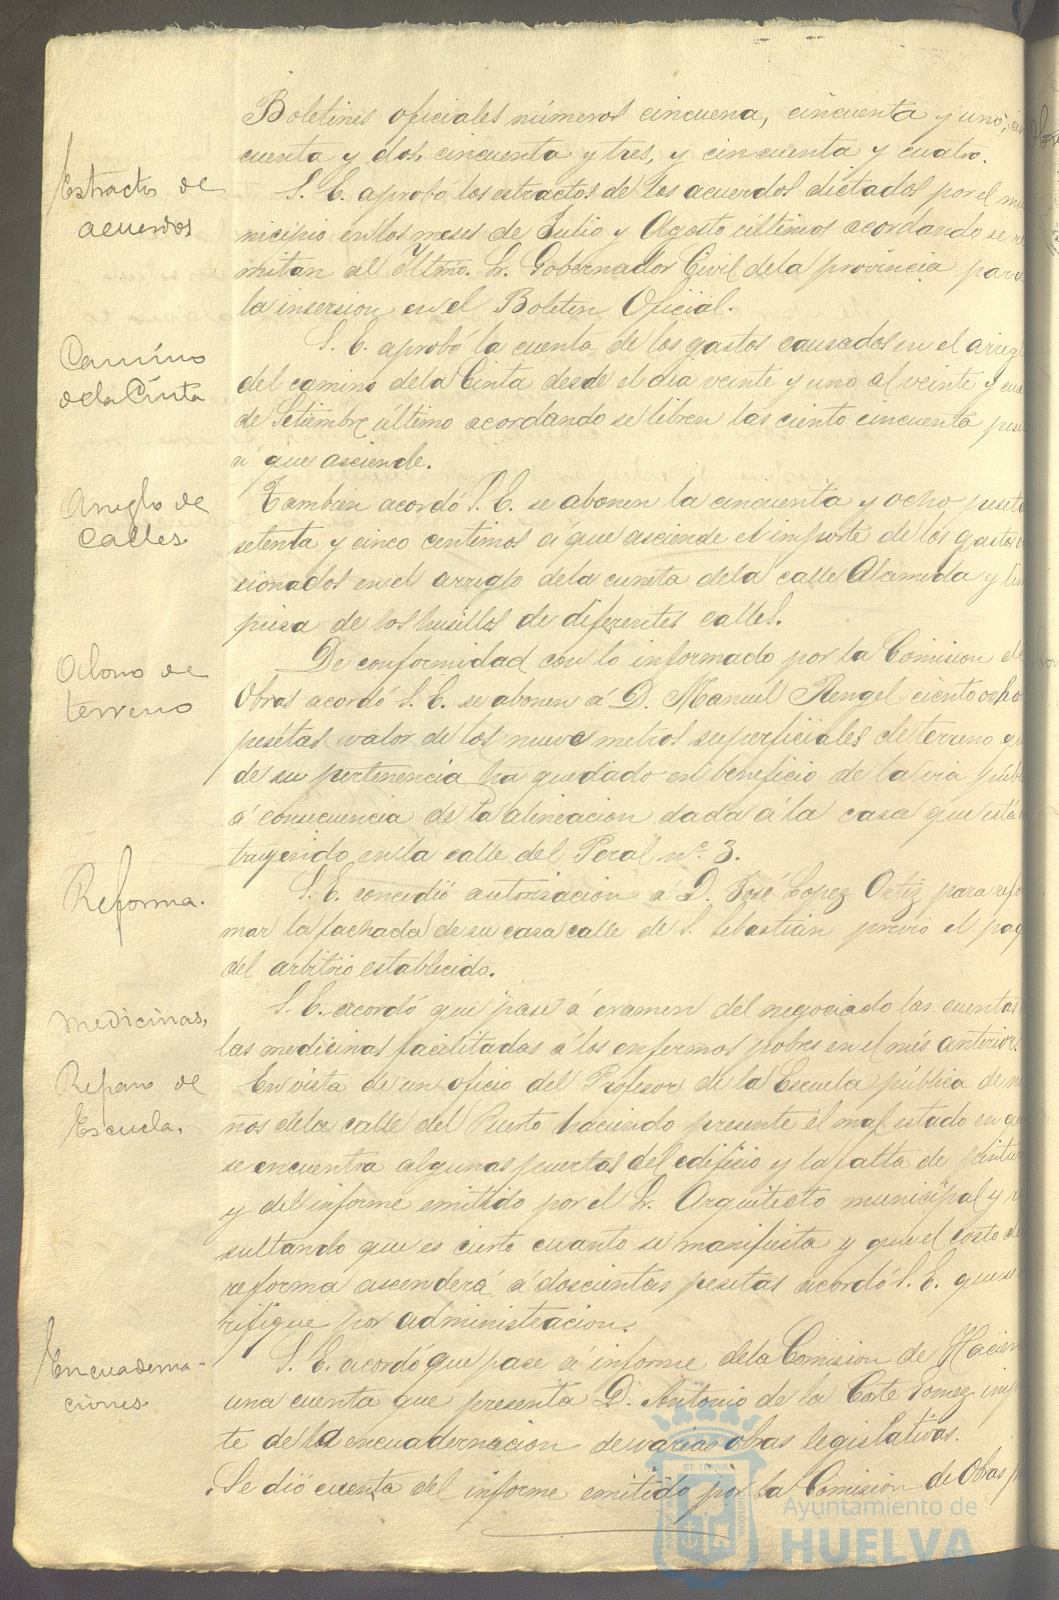 Boletines oficiales números cincuena, cincuenta y uno, cin
cuenta y dos, cincuenta y tres, y cincuenta y cuatro.
Estracto de
acuerdos
S. E. aprobó los estractos de los acuerdos dictados por el mu
nicipio en los meses de Julio y Agosto últimos acordando se re
mitan al Iltmo. Sr. Gobernador Civil de la provincia para
la insersion en el Boletin Oficial.
Camino
de la Cinta
S. E. aprobó la cuenta de los gastos causados en el arregl
del camino de la Cinta desde el dia veinte y uno al veinte y cua
de Setiembre último acordando se libren las ciento cincuenta pese
á que asciende.
Arreglo de
Calles
Tambien acordó S. E. se abonen la cincuenta y ocho peseta
setenta y cinco centimos á que asciende el importe de los gastos o
sionados en el arreglo de la cuneta de la calle Alameda y lim
pieza de los husillos de diferentes calles.
Abono de
terreno
De conformidad con lo informado por la Comision de
Obras acordó S. E. se abonen á D. Manuel Rengel ciento ocho
pesetas valor de los nueve metros superficiales de terreno qu
de su pertenencia ha quedado en beneficio de la via públ
á consecuencia de la alineacion dada á la casa que está
truyendo en la calle del Peral nº. 3.
Reforma.
S. E. concedió autorizacion á D. José Lopez Ortiz para refo
mar la fachada de su casa calle de S. Sebastian previo el pag
del arbitrio establecido.
Medicinas,
S. E. acordó que pase á examen del negociado las cuentas
las medicinas facilitadas á los enfermos pobres en el mes anterior.
Reparo de
Escuela.
En vista de un oficio del Profesor de la Escuela pública de ni
ños de la calle del Puerto haciendo presente el mal estado en qu
se encuentra algunas puertas del edificio y la falta de pintur
y del informe emitido por el Sr. Arquitecto municipal y re
sultando que es cierto cuanto se manifiesta y que el costo de
reforma ascenderá á doscientas pesetas acordó S. E. que se
rifique por administracion.
Encuaderna-
ciones
S. E. acordó que pase á informe de la Comision de Hacien
una cuenta que presenta D. Antonio de la Corte Gomez imp
te de la encuadernacion de varias obras legislativas.
Se dió cuenta del informe emitido por la Comision de Obras
Ayuntamiento de
HUELVA